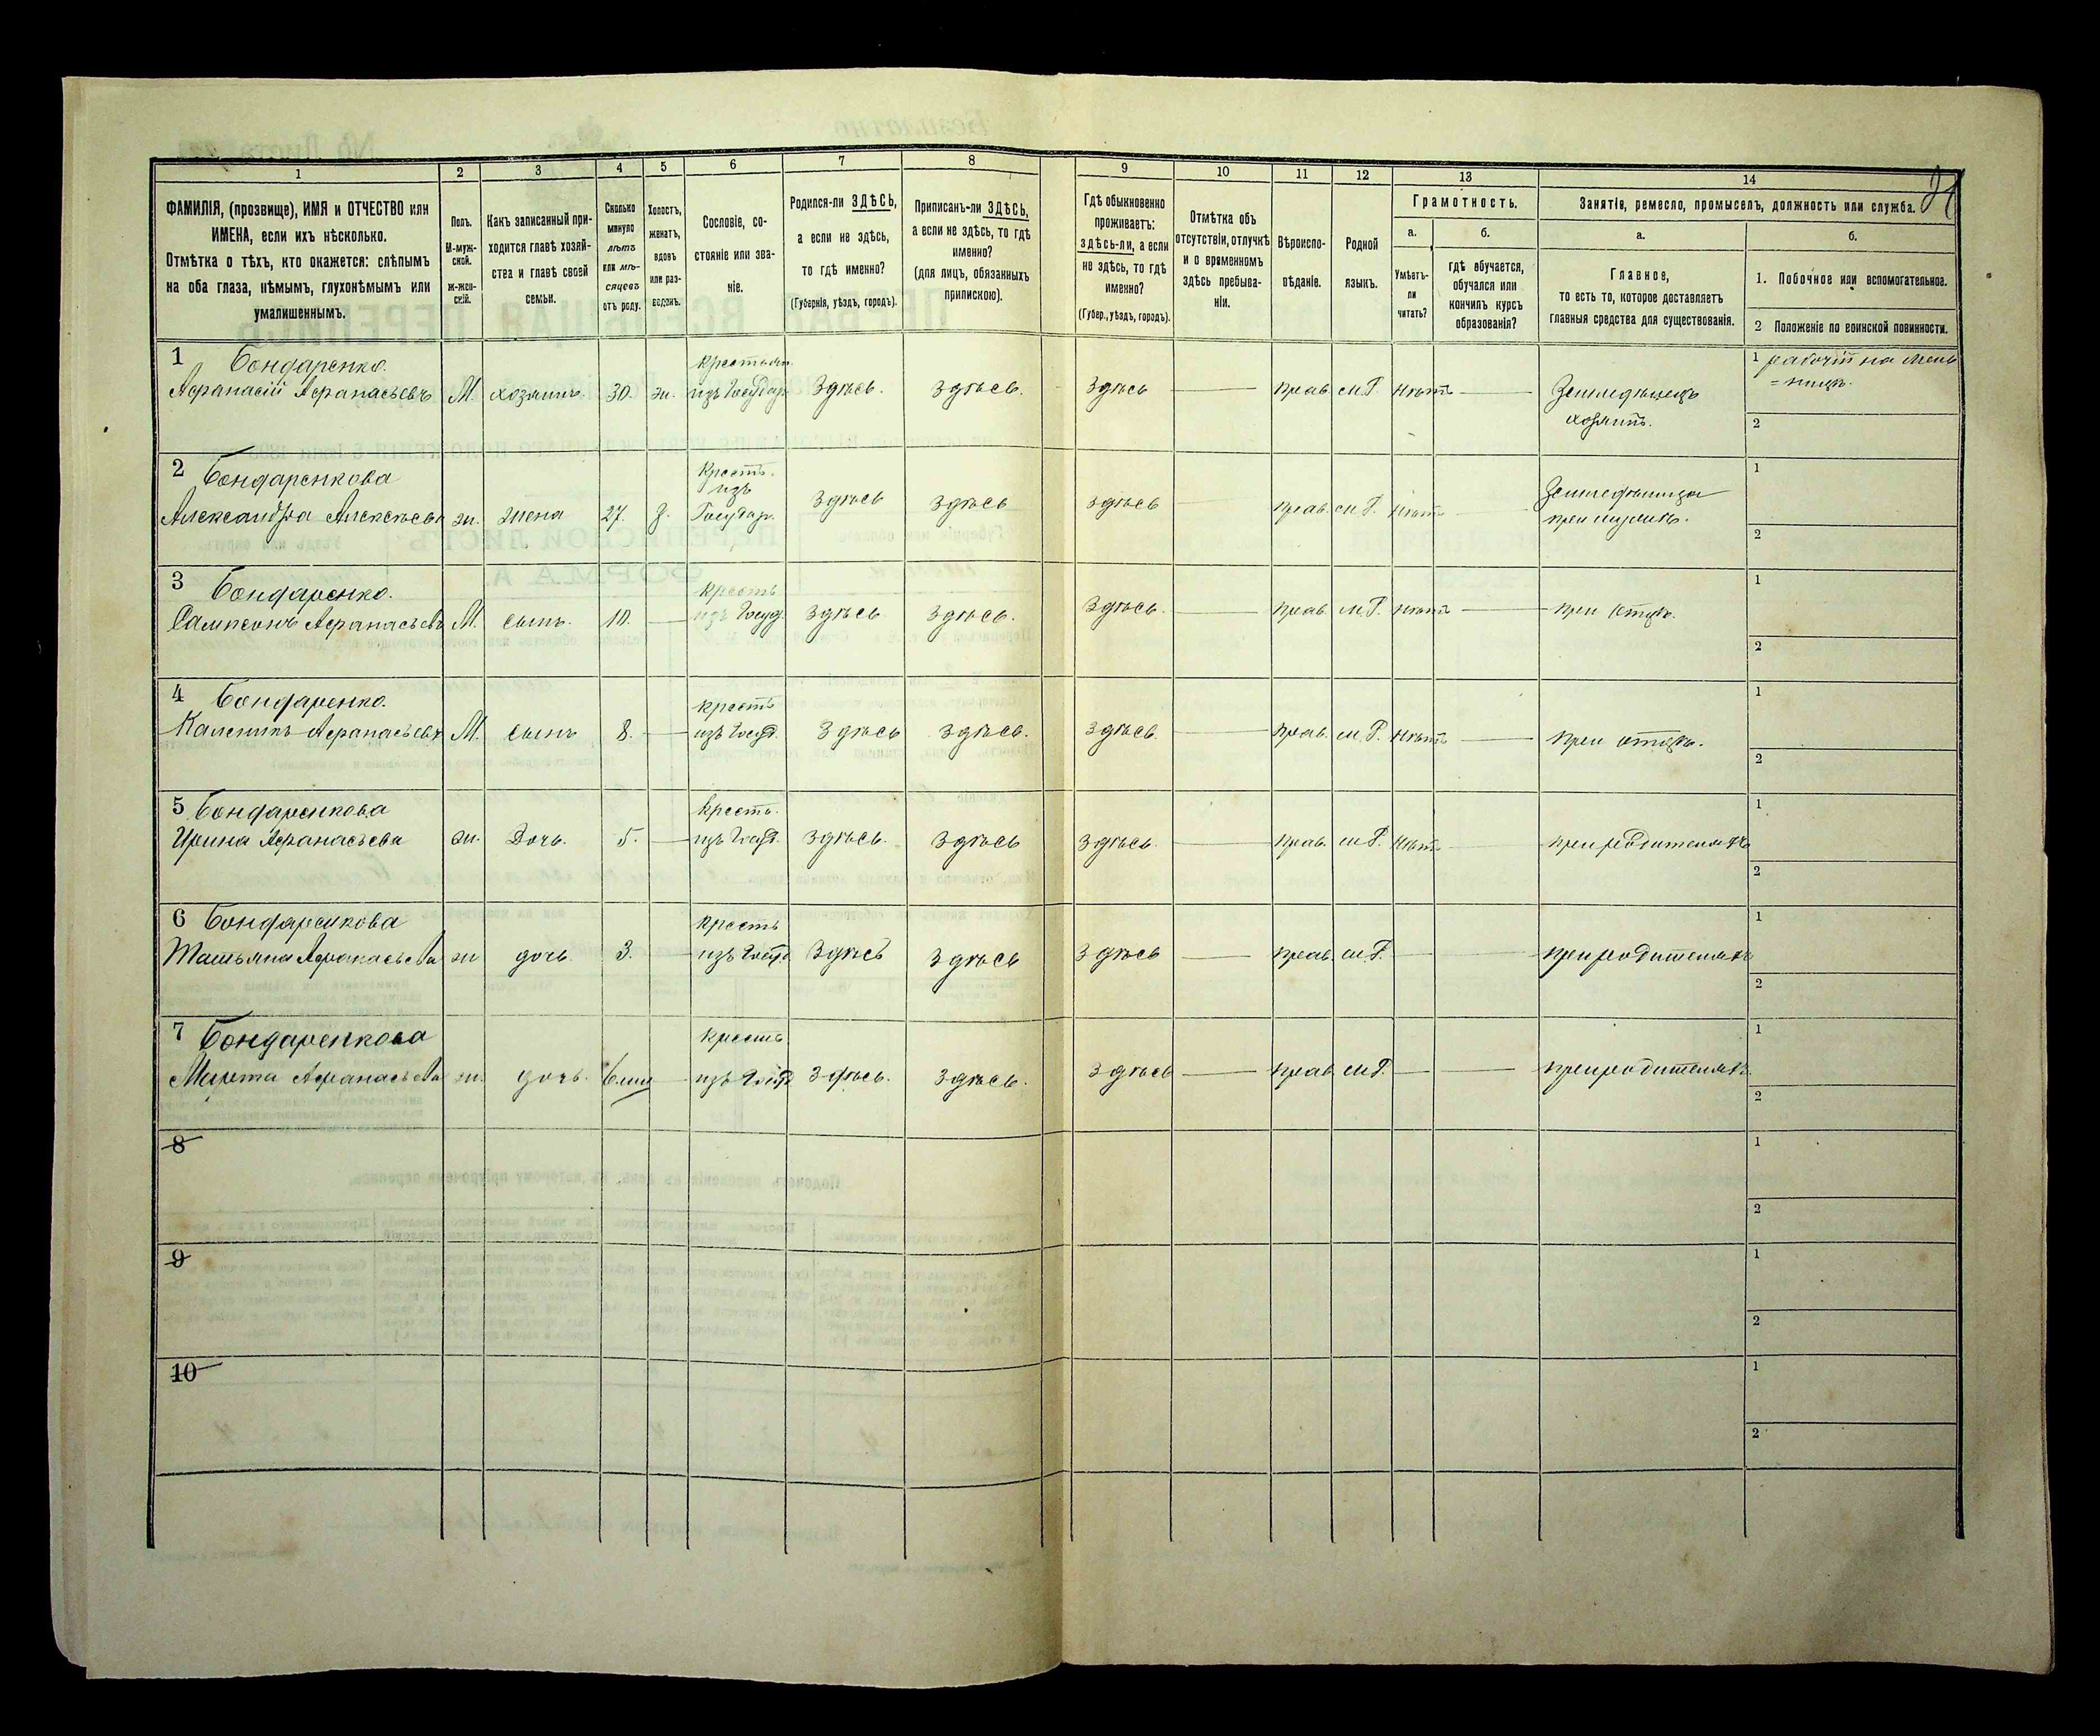 1
2
3
4
5
6
7
8
9
10
11
12
13
14
ФАМИЛІЯ, (прозвище), ИМЯ и ОТЧЕСТВО или
ИМЕНА, если ихъ нѣсколько.
Отмѣтка о тѣхъ, кто окажется: слѣпымъ
на оба глаза, нѣмымъ, глухонѣмымъ или
умалишеннымъ.
Полъ.
М-муж-
ской.
Ж-жен-
скій.
Какъ записанный при-
ходится главѣ хозяй-
ства и главѣ своей
семьи.
Сколько
минуло
лѣтъ
или мѣ-
сяцевъ
отъ роду.
Холостъ,
женатъ,
вдовъ
или раз-
веденъ.
Сословіе, со-
стояніе или зва-
ніе.
Родился-ли ЗДѢСЬ,
а если не здѣсь,
то гдѣ именно?
(Губернія, уѣздъ, городъ).
Приписанъ-ли ЗДѢСЬ,
а если не здѣсь, то гдѣ
именно?
(для лицъ, обязанныхъ
припискою).
Гдѣ обыкновенно
проживаетъ:
здѣсь-ли, а если
не здѣсь, то гдѣ
именно?
(Губер., уѣздъ, городъ).
Отмѣтка объ
отсутствіи, отлучкѣ
и о временномъ
здѣсь пребыва-
ніи.
Вѣроиспо-
вѣданіе.
Родной
языкъ.
Грамотность.
а.
Умѣетъ-
ли
читать?
б.
гдѣ обучается,
обучался или
кончилъ курсъ
образованія?
Занятіе, ремесло, промыселъ, должность или служба.
а.
Главное,
то есть то, которое доставляетъ
главныя средства для существованія.
б.
1. Побочное или вспомогательное.
2 Положеніе по воинской повинности.
1 Бондаренко.
Афанасій Афанасьевъ М. хозяинъ. 30. ж. крестьян. изъ Государ. Здѣсь. здѣсь. здѣсь прав. м.Р. нѣтъ Земледѣлецъ
хозяинъ.
1 рабочій на мель
=ницѣ.
2
2 Бондаренкова
Александра Алексѣева ж. жена 27. з. Крест. изъ Государ. здѣсь здѣсь здѣсь прав. м.Р. нѣтъ
при мужѣ.
1
2
3 Бондаренко.
Сампсонъ Афанасьевъ М. сынъ. 10. крест изъ Госуд. здѣсь здѣсь. здѣсь. прав. м.Р. нѣтъ при отцѣ.
1
2
4 Бондаренко.
Каленикъ Афанасьевъ М. сынъ 8. крест изъ Госуд. здѣсь здѣсь. здѣсь прав. м.Р. нѣтъ при отцѣ.
1
2
5 Бондаренкова
Ирина Афанасьева ж. Дочь. 5. крест. изъ Госуд. здѣсь. здѣсь здѣсь. прав. м.Р. нѣтъ при родителяхъ
1
2
6 Бондаренкова
Татьяна Афанасьева ж дочь 3. крест изъ Госуд. здѣсь здѣсь здѣсь прав. м.Р. при родителяхъ
1
2
7 Бондаренкова
Марта Афанасьева ж. дочь. крест. изъ Госуд. здѣсь. здѣсь. здѣсь прав. м.Р. при родителяхъ.
1
2
8
1
2
9
1
2
10
1
2